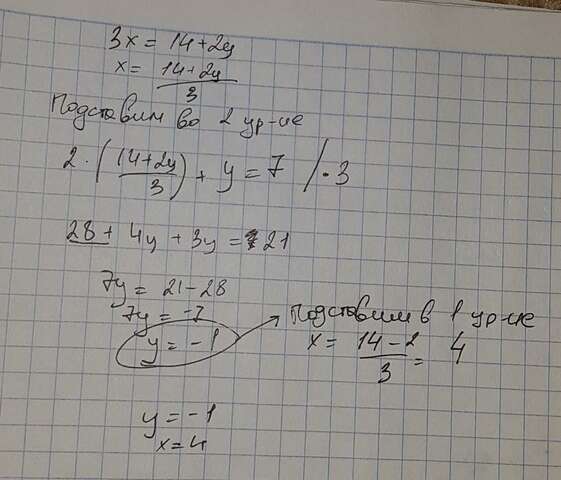 3x = 14+2y
x = (14+2y)/3
Подставим во 2 ур-ие
2·((14+2y)/3) + y = 7 /·3
28 + 4y + 3y = 21
7y = 21-28
7y = -7
y = -1
Подставим в 1 ур-ие
x = (14-2)/3 = 4
y = -1
x = 4